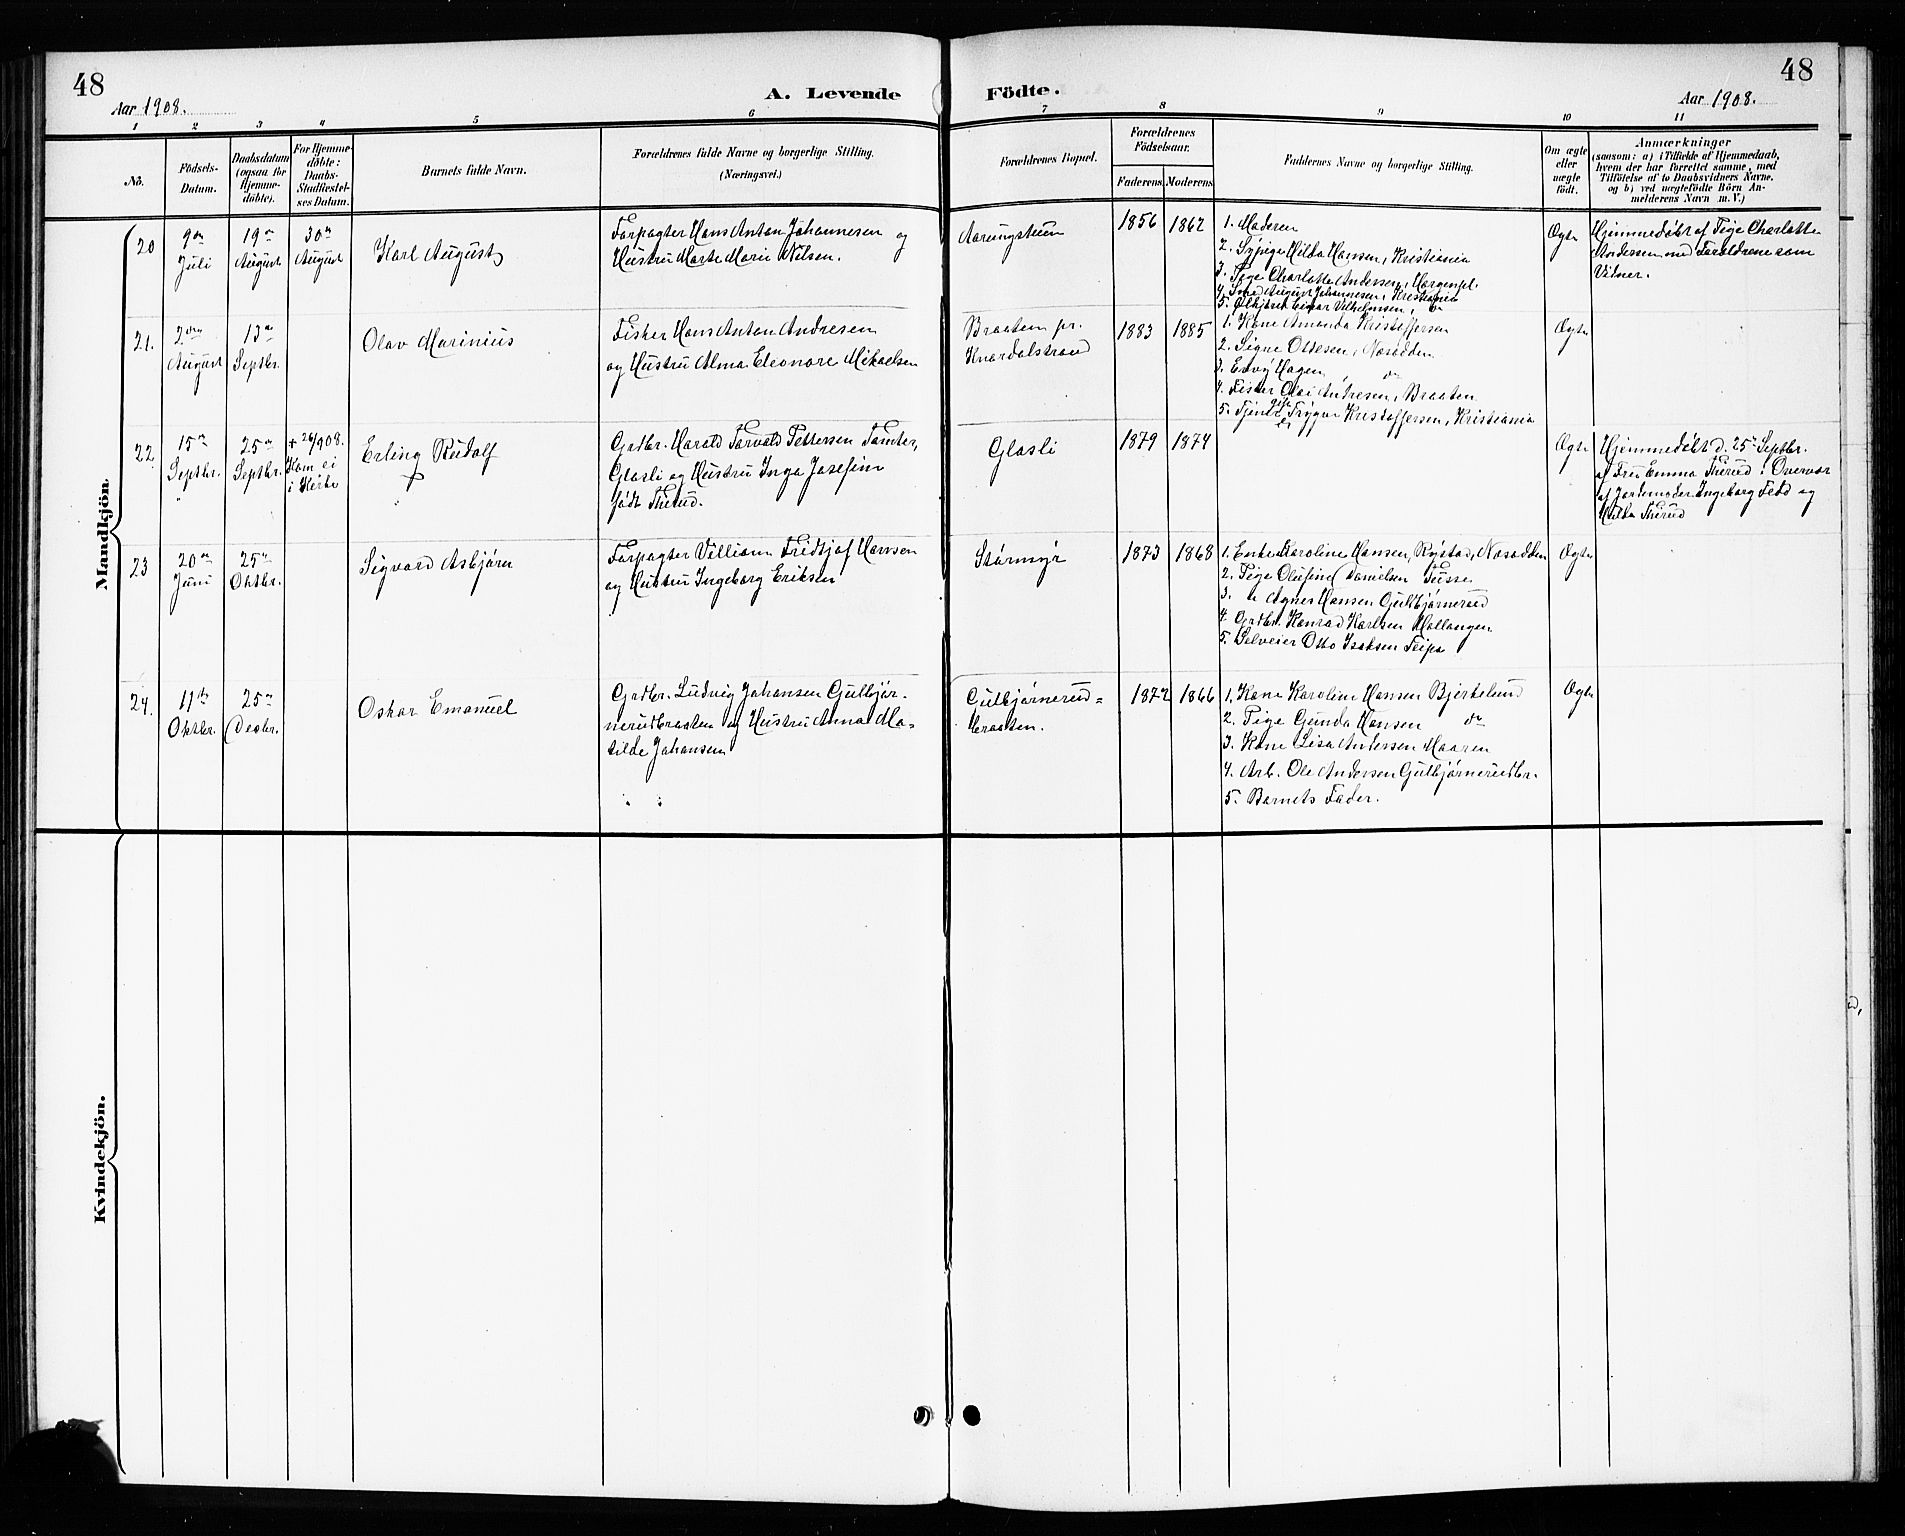 48
Aar 1908.
A. Levende
Födte.
48
Aar 1908.
1 2 3 4 5 6 7 8 9 10 11
No.
Födsels-
Datum.
Daabsdatum
(ogsaa for
Hjemme-
döbte).
For Hjemme-
döbte:
Daabs-
Stadfæstel-
ses Datum.
Barnets fulde Navn.
Forældrenes fulde Navne og borgerlige Stilling.
(Næringsvei.)
Forældrenes Bopæl.
Forældrenes
Födselsaar.
Faderens Moderens
Faddernes Navne og borgerlige Stilling.
Om ægte
eller
uægte
født.
Anmærkninger
(saasom: a) i Tilfælde af Hjemmedaab,
hvem der har forrettet samme, med
Tilföielse af to Daabsvidners Navne,
og b) ved uægtefödte Börn An-
melderens Navn m. V.)
Mandkjön.
20
9de
Juli
19de
August
30te
August
Karl August
Forpagter Hans Anton Johannesen og
Hustru Marte Marie Nilsen.
1856
1862
1. Moderen
2. Sypige Hilda Hansen, Kristiania
3. Pige Charlotte Andersen,
4. August Johannesen, Kristiania
5. Einar Vilhelmsen, do
Ægte
Hjemmedöbt af Pige Charlotte
Andersen med Forældrene som
Vidner.
21.
2den
August
13de
Septbr.
Olav Marinius
Fisker Hans Anton Andresen
og Hustru Alma Eleonore Mikaelsen
Braaten pr.
Knardalstrand
1883
1885
1. Kone Amanda Kristoffersen
2. Signe Ottesen, Nesodden
3. Hagen do
4. Fisker Olai Andresen, Braaten
5. Trygve Kristoffersen, Kristiania
Ægte
22
15de
Septbr.
25de
Septbr.
+ 26/9 08.
Kom ei
i Kirke
Erling Rudolf
+
Grdbr. Harald Torvald Pettersen Tomter,
Glasli og Hustru Inga Josefine
født Therud.
Glasli
1879
1874
Ægte
Hjemmedöbt d. 25de Septbr.
af Fru Emma Therud i Overvær
af Jordemoder Ingeborg Feto og
Hilda Therud
23
20de
Juni
25de
Oktbr.
Sigvard Asbjørn
Forpagter Villiam Fridtjof Hansen
og Hustru Ingeborg Eriksen
Stormyr
1873
1868
1. Enke Karoline Hansen, Røstad, Nesodden
2. Pige Olufine Danielsen Tusse
3. " Agnes Hansen Gulbjørnerud
4. Grdbr. Konrad Karlsen Mellangen
5. Selveier Otto Isaksen Teipa
Ægte
24.
11te
Oktbr.
25de
Decbr.
Oskar Emanuel
Grdbr. Ludvig Johansen Gulbjør-
nerudbraaten og Hustru Anna Ma-
tilde Johansen
Gulbjørnerud=
braaten.
1872
1866
1. Kone Karoline Hansen Bjerkelund
2. Pige Gunda Hansen do
3. Kone Lisa Andersen Haaren
4. Arb. Ole Andersen Gulbjørnerudbr.
5. Barnets Fader.
Ægte
Kvindekjön.